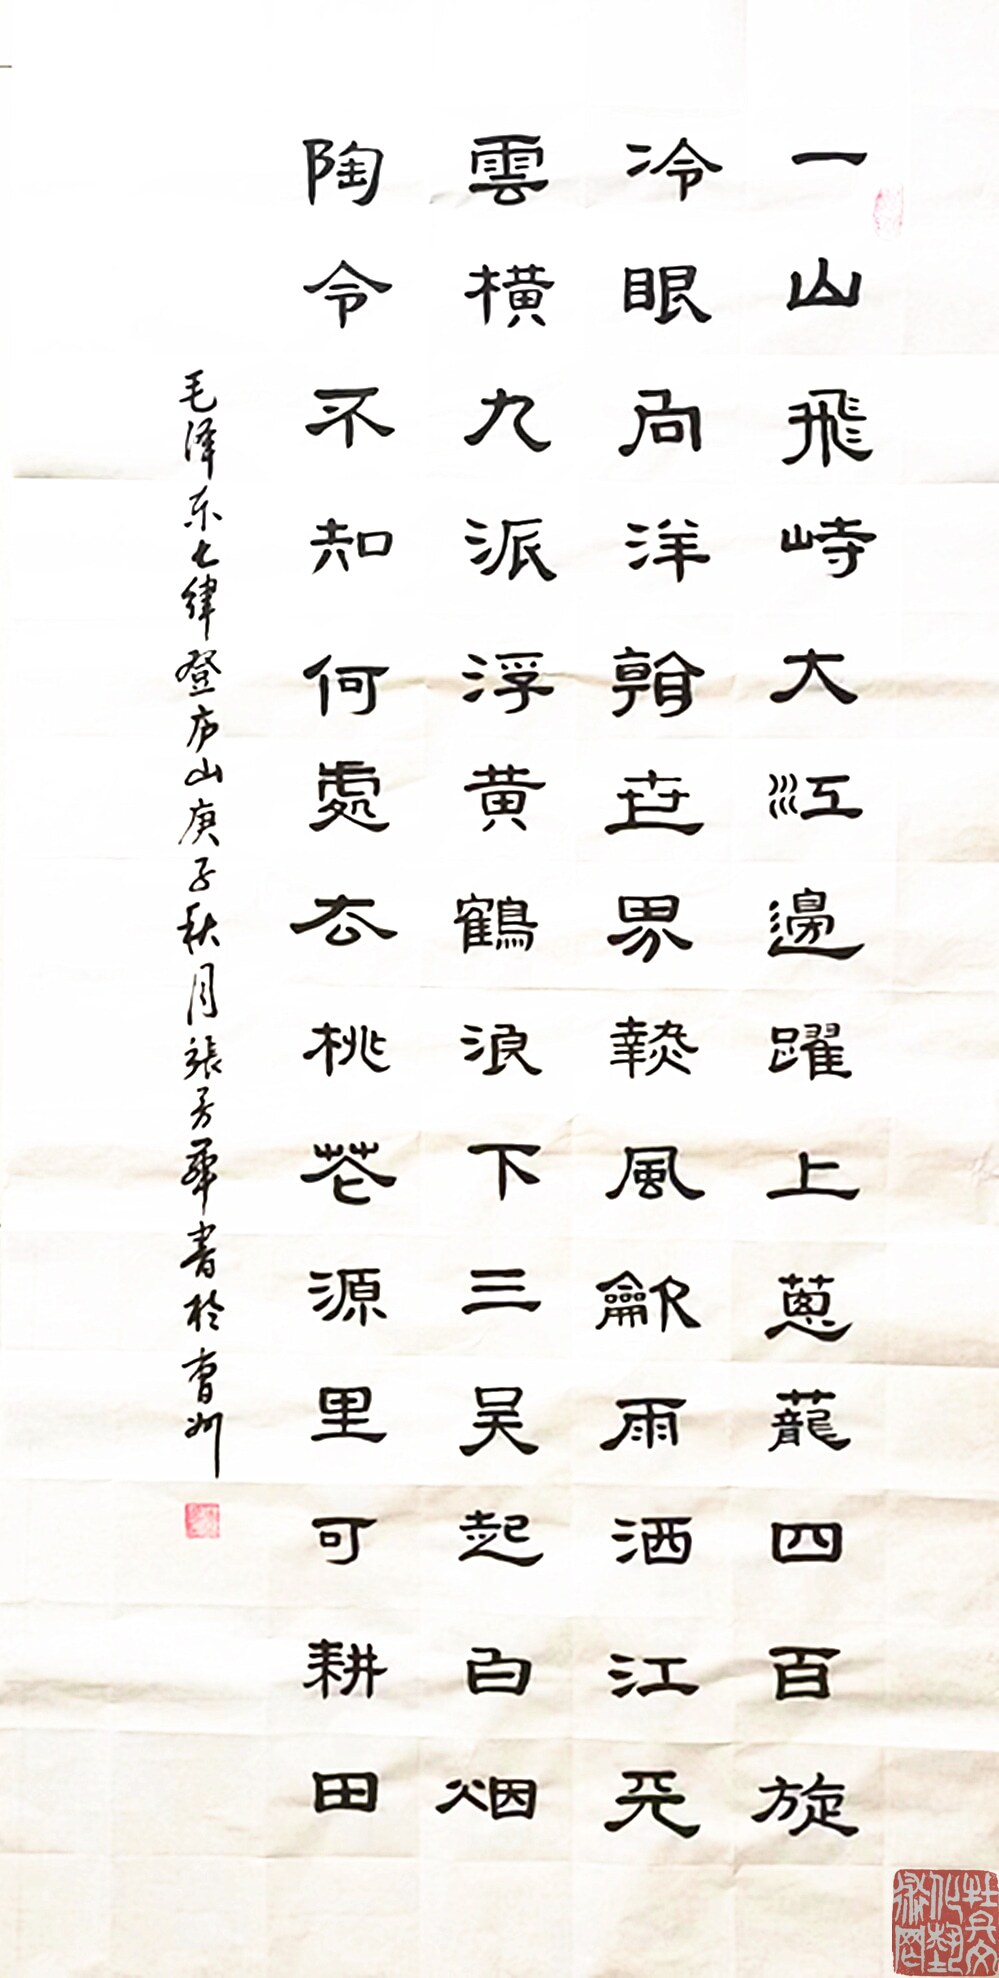 一山飛峙大江邊躍上蔥蘢四百旋
冷眼向洋看世界熱風龡雨洒江天
雲橫九派浮黄鶴浪下三吴起白烟
陶令不知何處去桃花源里可耕田
毛泽东七律登庐山庚子秋月張芳華書於曹州
杜兵文化藝術网